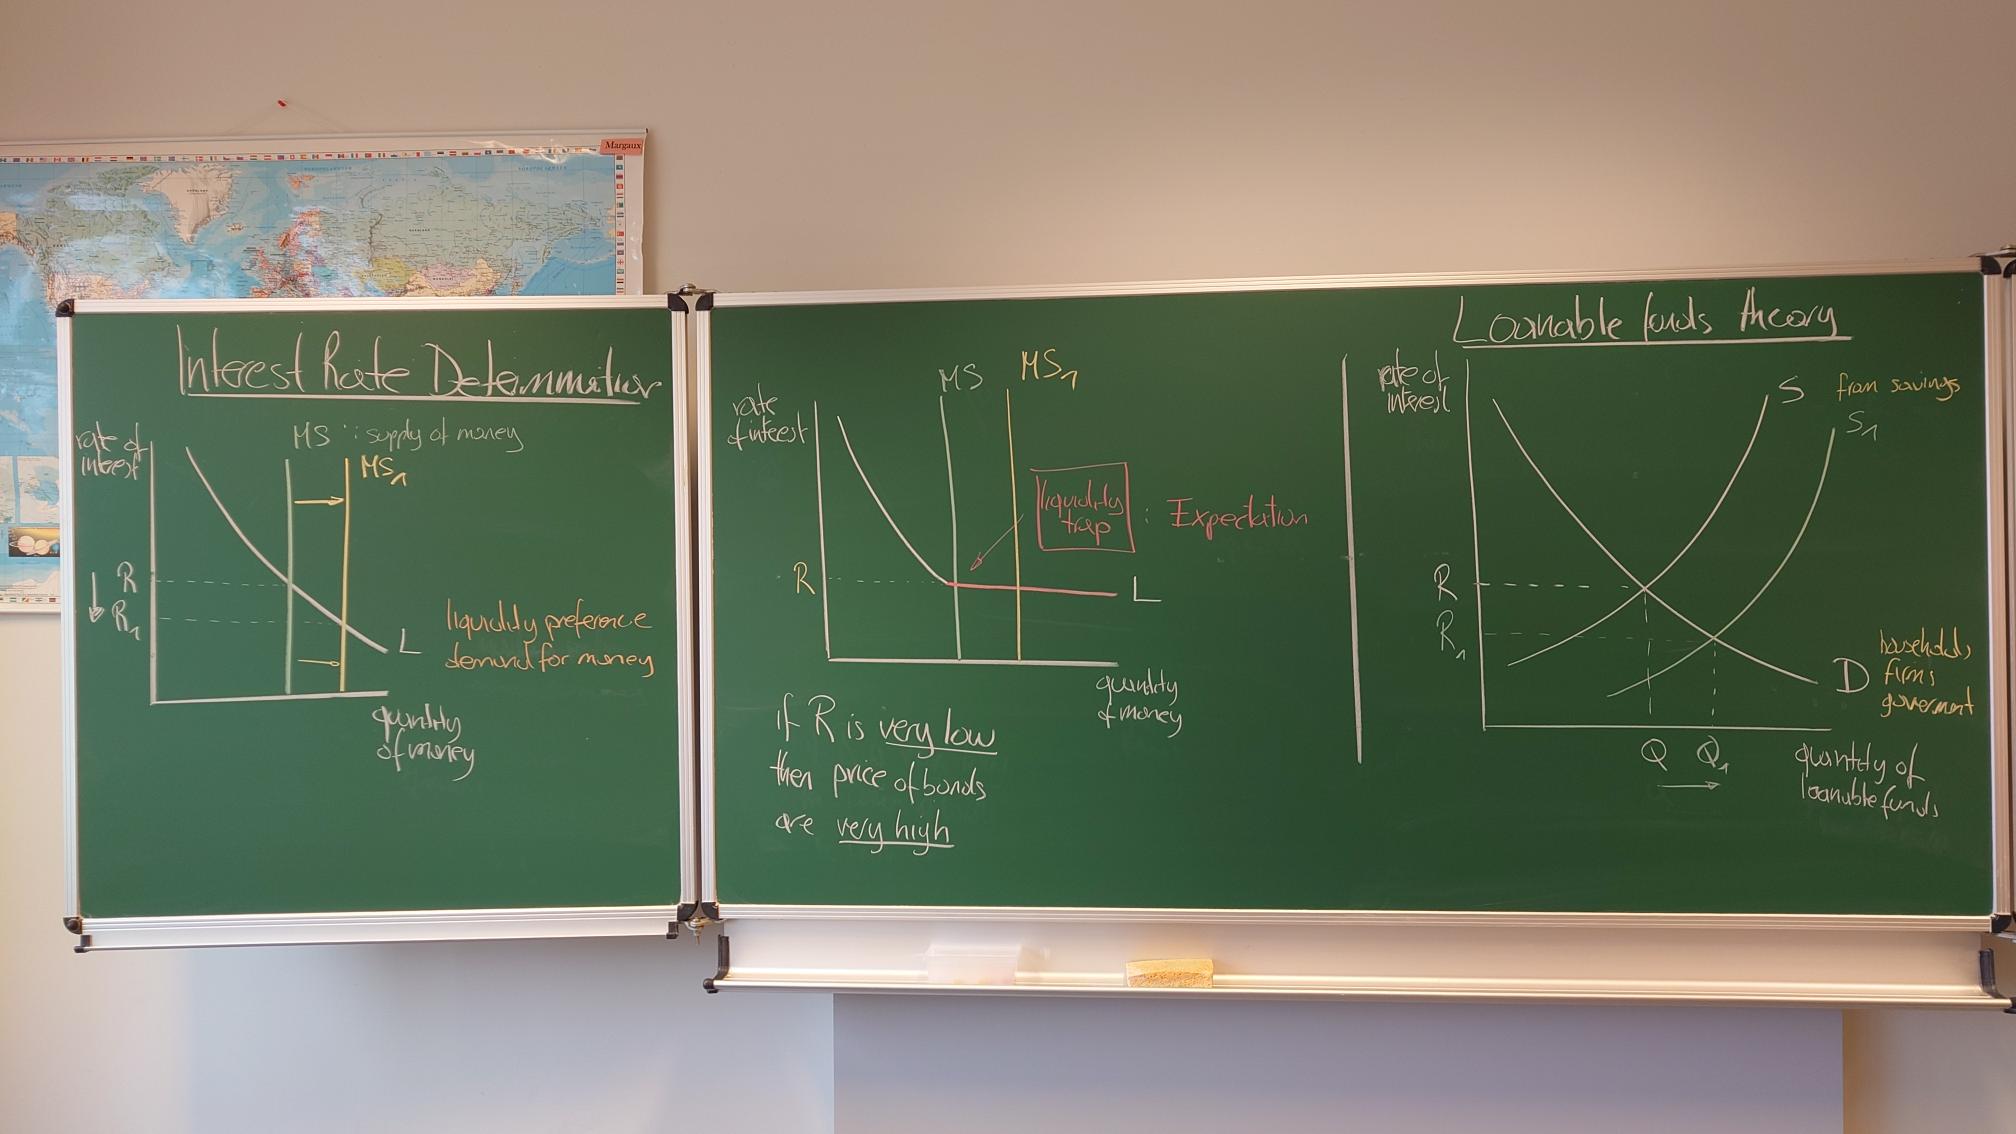 Margaux
Interest Rate Determination
MS : supply of money
rate of
interest
MS1
R
R1
L
liquidity preference
demand for money
quantity
of money
rate
of interest
MS
MS1
liquidity
trap
: Expectation
R
L
quantity
of money
if R is very low
then price of bonds
are very high
Loanable funds theory
rate of
interest
S
from savings
S1
R
R1
D
households
firms
goverment
Q
Q1
quantity of
loanable funds